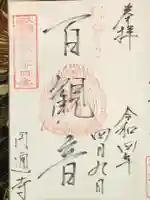 奉拝
令和四年
四月九日
百観音
円通寺